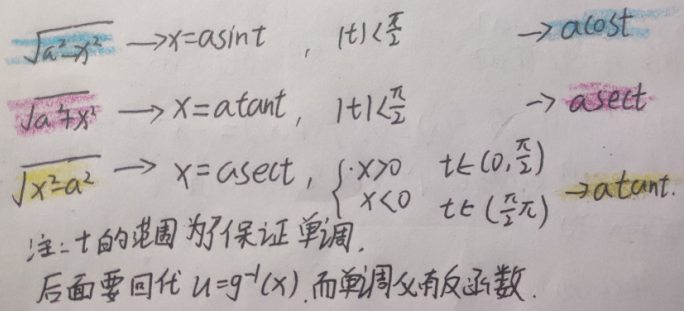 √a²-x² → x=asint , |t|<π/2 → acost
√a²+x² → x=atant, |t|<π/2 → asect
√x²-a² → x=asect, { x>0 t∈(0,π/2) x<0 t∈(π/2 π) → atant.
注:t的范围为了保证单调.
后面要回代 u=g⁻¹(x).而单调必有反函数.